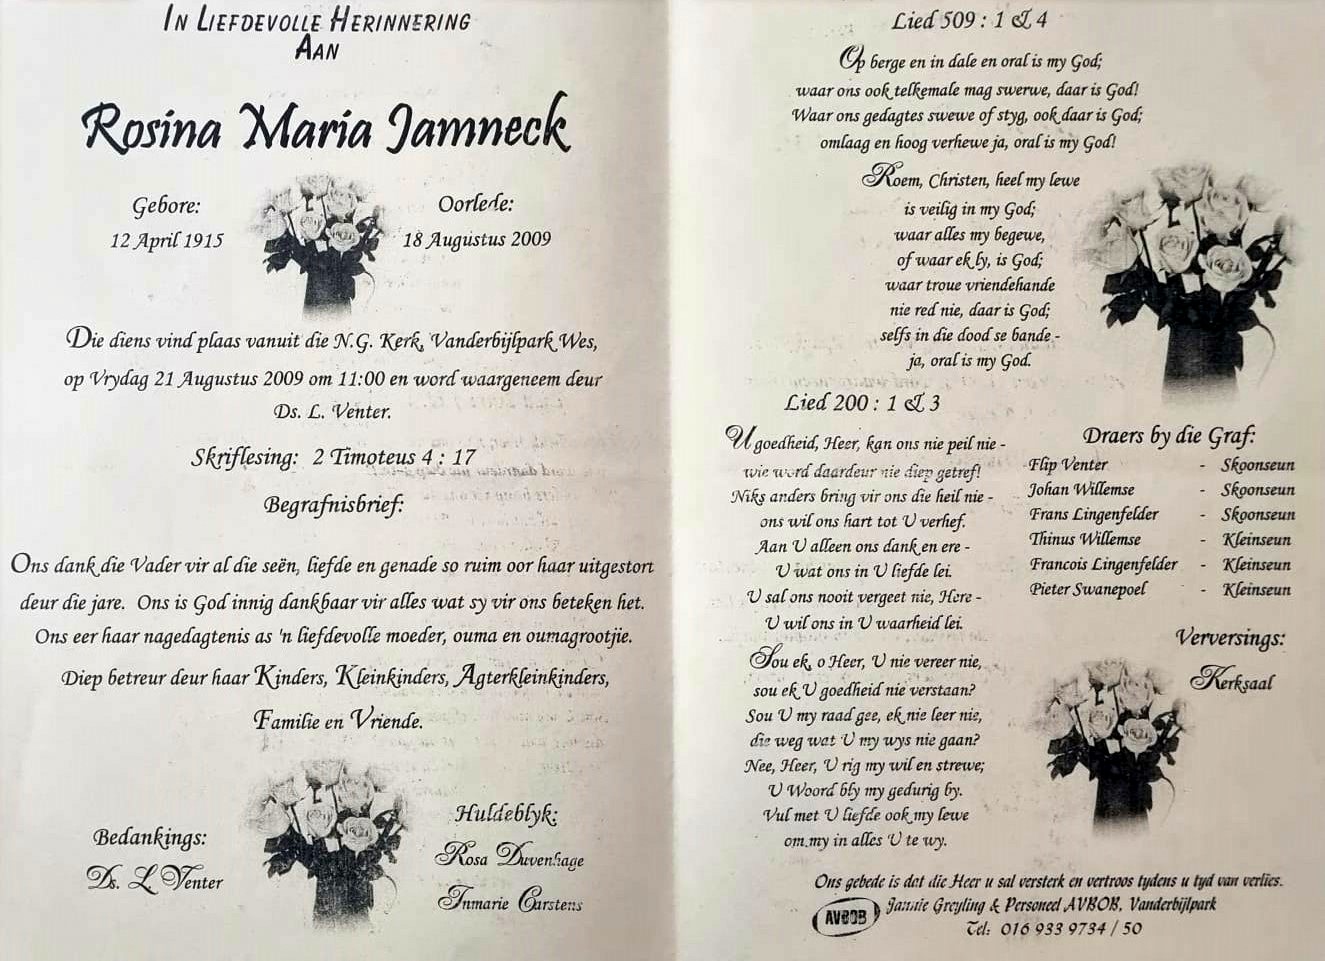 In Liefdevolle Herinnering
Aan
Rosina Maria Jamneck
Gebore:
12 April 1915
Oorlede:
18 Augustus 2009
Die diens vind plaas vanuit die N.G. Kerk, Vanderbijlpark Wes,
op Vrydag 21 Augustus 2009 om 11:00 en word waargeneem deur
Ds. L. Venter.
Skriflesing: 2 Timoteus 4 : 17
Begrafnisbrief:
Ons dank die Vader vir al die seën, liefde en genade so ruim oor haar uitgestort
deur die jare. Ons is God innig dankbaar vir alles wat sy vir ons beteken het.
Ons eer haar nagedagtenis as 'n liefdevolle moeder, ouma en oumagrootjie.
Diep betreur deur haar Kinders, Kleinkinders, Agterkleinkinders,
Familie en Vriende.
Bedankings:
Ds. L. Venter
Huldeblyk:
Rosa Duvenhage
Inmarie Carstens
Lied 509 : 1 & 4
Op berge en in dale en oral is my God;
waar ons ook telkemale mag swerwe, daar is God!
Waar ons gedagtes swewe of styg, ook daar is God;
omlaag en hoog verhewe ja, oral is my God!
Roem, Christen, heel my lewe
is veilig in my God;
waar alles my begewe,
of waar ek ly, is God;
waar troue vriendehande
nie red nie, daar is God;
selfs in die dood se bande -
ja, oral is my God.
Lied 200 : 1 & 3
U goedheid, Heer, kan ons nie peil nie -
wie word daardeur nie diep getref!
Niks anders bring vir ons die heil nie -
ons wil ons hart tot U verhef.
Aan U alleen ons dank en ere -
U wat ons in U liefde lei.
U sal ons nooit vergeet nie, Here -
U wil ons in U waarheid lei.
Sou ek, o Heer, U nie vereer nie,
sou ek U goedheid nie verstaan?
Sou U my raad gee, ek nie leer nie,
die weg wat U my wys nie gaan?
Nee, Heer, U rig my wil en strewe;
U Woord bly my gedurig by.
Vul met U liefde ook my lewe
om my in alles U te wy.
Draers by die Graf:
Flip Venter - Skoonseun
Johan Willemse - Skoonseun
Frans Lingenfelder - Skoonseun
Thinus Willemse - Kleinseun
Francois Lingenfelder - Kleinseun
Pieter Swanepoel - Kleinseun
Verversings:
Kerksaal
Ons gebede is dat die Heer u sal versterk en vertroos tydens u tyd van verlies.
AVBOB
Jannie Greyling & Personeel AVBOB, Vanderbijlpark
Tel: 016 933 9734 / 50